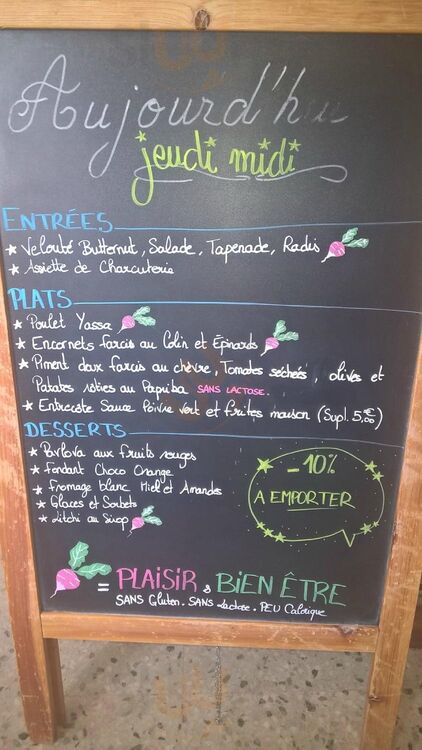 Aujourd'hui
jeudi midi
ENTRÉES
★ Velouté Butternut, Salade, Tapenade, Radis
★ Assiette de Charcuterie
PLATS
★ Poulet Yassa
★ Encornets farcis au Colin et Épinards
★ Piment doux farcis au chèvre, Tomates séchées, olives et
Patates rôties au Paprika SANS LACTOSE.
★ Entrecôte Sauce Poivre Vert et frites maison (Supl. 5,00€)
DESSERTS
★ Pavlova aux fruits rouges
★ Fondant Choco Orange
★ Fromage blanc Miel et Amandes
★ Glaces et Sorbets
★ Litchi au Sirop
-10%
A EMPORTER
= PLAISIR & BIEN ÊTRE
SANS Gluten. SANS Lactose. PEU Calorique